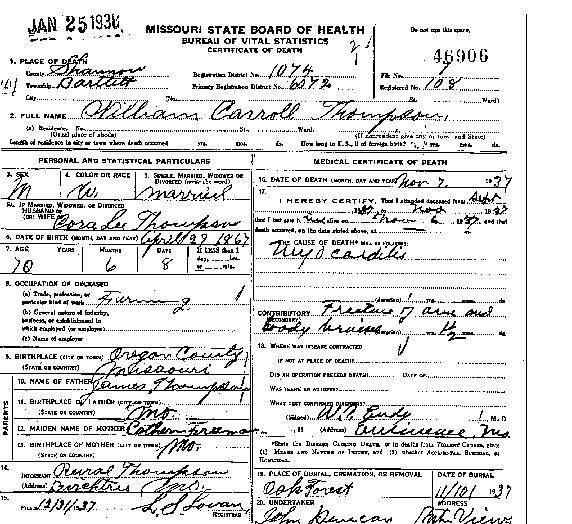 JAN 25 193
MISSOURI STATE BOARD OF HEALTH
BUREAU OF VITAL STATISTICS
CERTIFICATE OF DEATH
Do not use this space.
46906
1. PLACE OF DEATH
County Shannon Registration District No. 1074 File No.
Township Bartlett Primary Registration District No. 6072 Registered No. 108
City (No. St. Ward)
2. FULL NAME William Carroll Thompson
(a) Residence, No. St. Ward.
(Usual place of abode) (If nonresident give city or town and State)
Length of residence in city or town where death occurred yrs. mos. ds. How long in U.S., if of foreign birth? yrs. mos. ds.
PERSONAL AND STATISTICAL PARTICULARS
3. SEX M
4. COLOR OR RACE W
5. SINGLE, MARRIED, WIDOWED OR DIVORCED (write the word) Married
5a. IF MARRIED, WIDOWED, OR DIVORCED
HUSBAND OF (OR) WIFE OF Cora Lee Thompson
6. DATE OF BIRTH (MONTH, DAY AND YEAR) April 29 1867
7. AGE YEARS MONTHS DAYS If LESS than 1 day, hrs. or min.
70 6 8
8. OCCUPATION OF DECEASED
(a) Trade, profession, or particular kind of work Farming
(b) General nature of industry, business, or establishment in which employed (or employer)
(c) Name of employer
9. BIRTHPLACE (CITY OR TOWN) Oregon County
(STATE OR COUNTRY) Missouri
PARENTS
10. NAME OF FATHER James Thompson
11. BIRTHPLACE OF FATHER (CITY OR TOWN)
(STATE OR COUNTRY) Mo.
12. MAIDEN NAME OF MOTHER Freeman
13. BIRTHPLACE OF MOTHER (CITY OR TOWN) Mo.
(STATE OR COUNTRY)
14. INFORMANT Thompson
(Address) Birchtree Mo.
15. 12/31/37
REGISTRAR
MEDICAL CERTIFICATE OF DEATH
16. DATE OF DEATH (MONTH, DAY AND YEAR) Nov 7 1937
17. I HEREBY CERTIFY, That I attended deceased from Sept
1937 to Nov 1937
that I last saw h alive on Nov 6 1937 and that
death occurred, on the date stated above, at m.
THE CAUSE OF DEATH* WAS AS FOLLOWS:
Myocarditis
(duration) yrs. mos. ds.
CONTRIBUTORY (SECONDARY) Fracture of arm and
body bruises
18. WHERE WAS DISEASE CONTRACTED
IF NOT AT PLACE OF DEATH?
DID AN OPERATION PRECEDE DEATH? DATE OF
WAS THERE AN AUTOPSY?
WHAT TEST CONFIRMED DIAGNOSIS?
(Signed) W.T. Eudy M.D.
, 19 (Address) Eminence, Mo.
19. PLACE OF BURIAL, CREMATION, OR REMOVAL DATE OF BURIAL
Oak Forest 11/10 1937
20. UNDERTAKER ADDRESS
John Duncan Mtn View